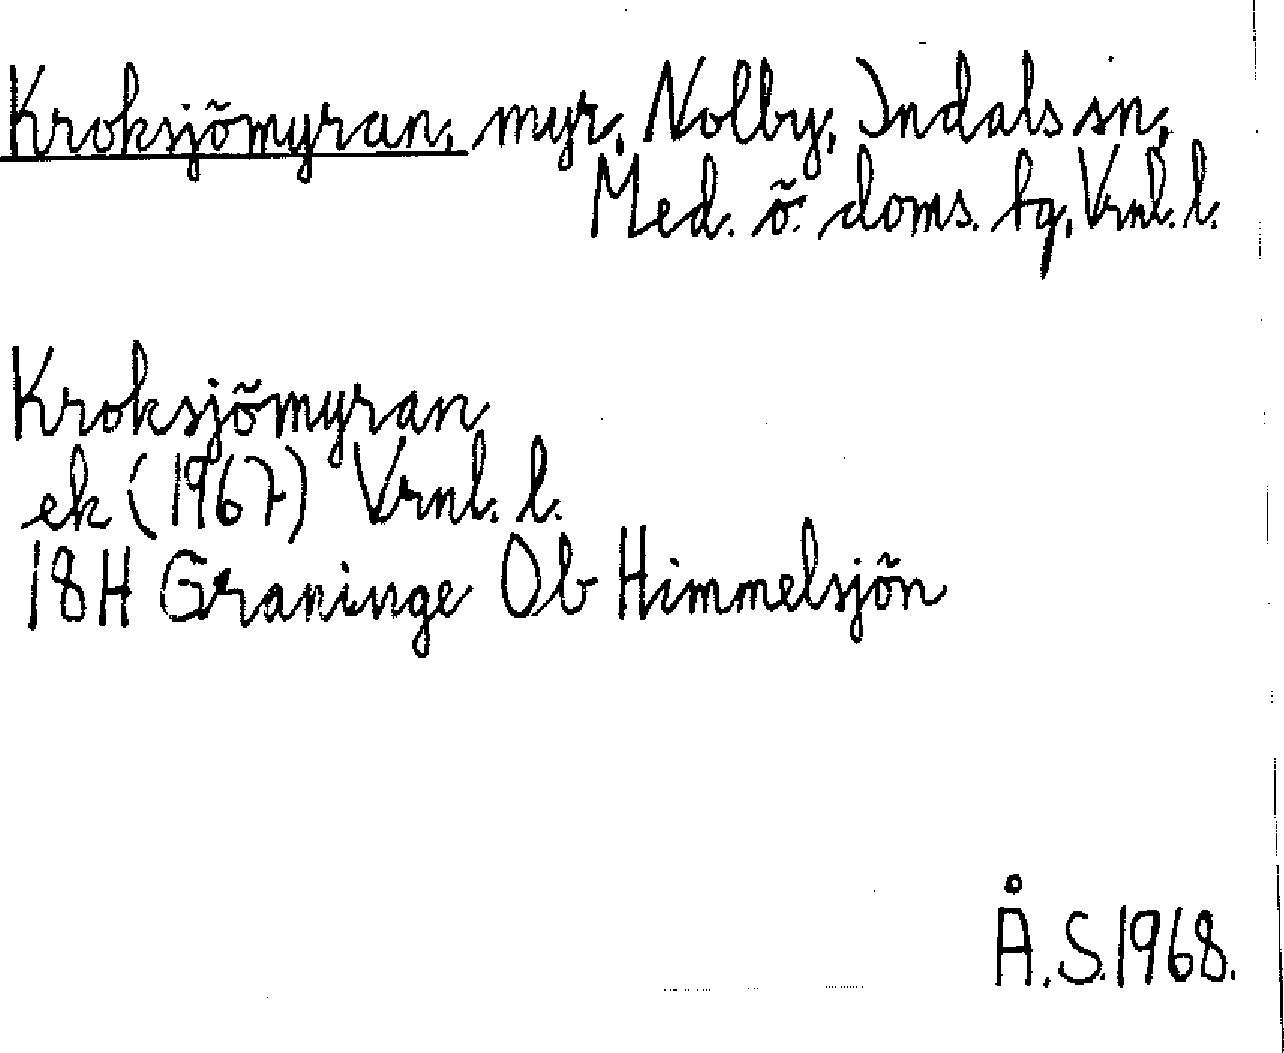 Kroksjömyran, myr, Nolby, Indals sn,
Med. ö. doms. tg, Vrnl. l.
Kroksjömyran
ek (1967) Vrnl. l.
18H Graninge Ob Himmelsjön
Å.S. 1968.